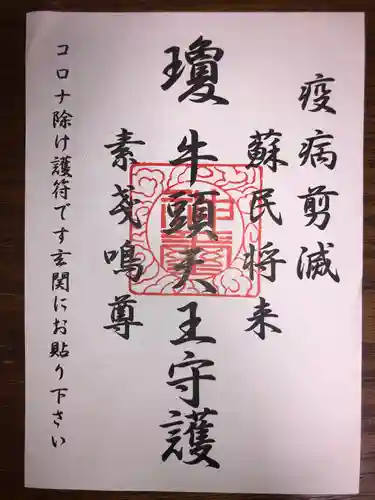 疫病剪滅
蘇民将来
瓊牛頭天王守護
素戔鳴尊
コロナ除け護符です玄関にお貼り下さい